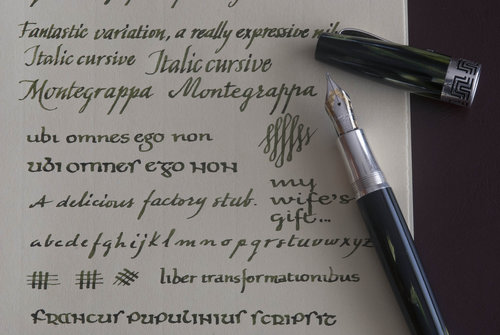 Fantastic variation, a really expressive nib
Italic cursive Italic cursive
Montegrappa Montegrappa
ubi omnes ego non
ubi omnes ego non
my
wife's
gift...
A delicious factory stub.
abcdefghijklmnopqrstuvwxyz
liber transformationibus
francus pupulinius scripsit